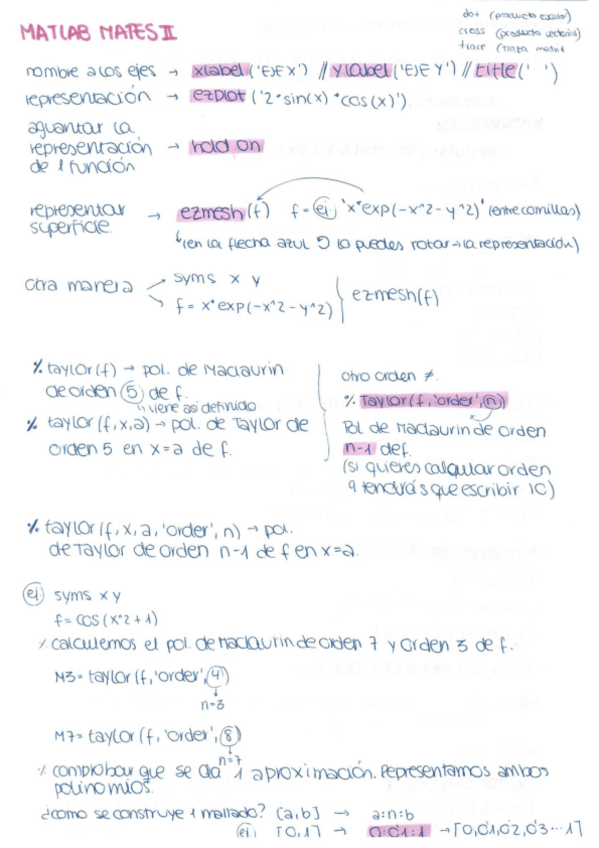 MATLAB MATES II
dot (producto escalar)
cross (producto vectorial)
trace (traza matriz
nombre a los ejes → xlabel('EJE X') // ylabel('EJE Y') // title(' ')
representación → ezplot ('2*sin(x)*cos(x)')
aguantar la
representación → hold on
de 1 función
representar
superficie → ezmesh(f) f = ej 'x*exp(-x^2-y^2)' (entre comillas)
(en la flecha azul ↺ lo puedes rotar → la representación)
otra manera → syms x y
→ f = x*exp(-x^2-y^2) } ezmesh(f)
% taylor(f) → pol. de Maclaurin
de orden 5 de f.
viene así definido
% taylor (f,x,a) → pol. de Taylor de
orden 5 en x=a de f.
otro orden ≠.
% Taylor(f,'order',n)
Pol de Maclaurin de orden
n-1 def.
(si quieres calcular orden
9 tendrás que escribir 10)
% taylor(f,x,a,'order',n) → pol.
de Taylor de orden n-1 de f en x=a.
ej syms x y
f = cos(x^2+1)
% calculemos el pol. de Maclaurin de orden 7 y orden 3 de f.
M3 = taylor(f,'order',4)
n=3
M7 = taylor(f,'order',8)
n=7
% comprobar que se da 1 aproximación. Representamos ambos
polinomios.
¿como se construye 1 mallado? [a,b] → a:n:b
ej. [0,1] → 0:0'1:1 → [0,0'1,0'2,0'3...1]